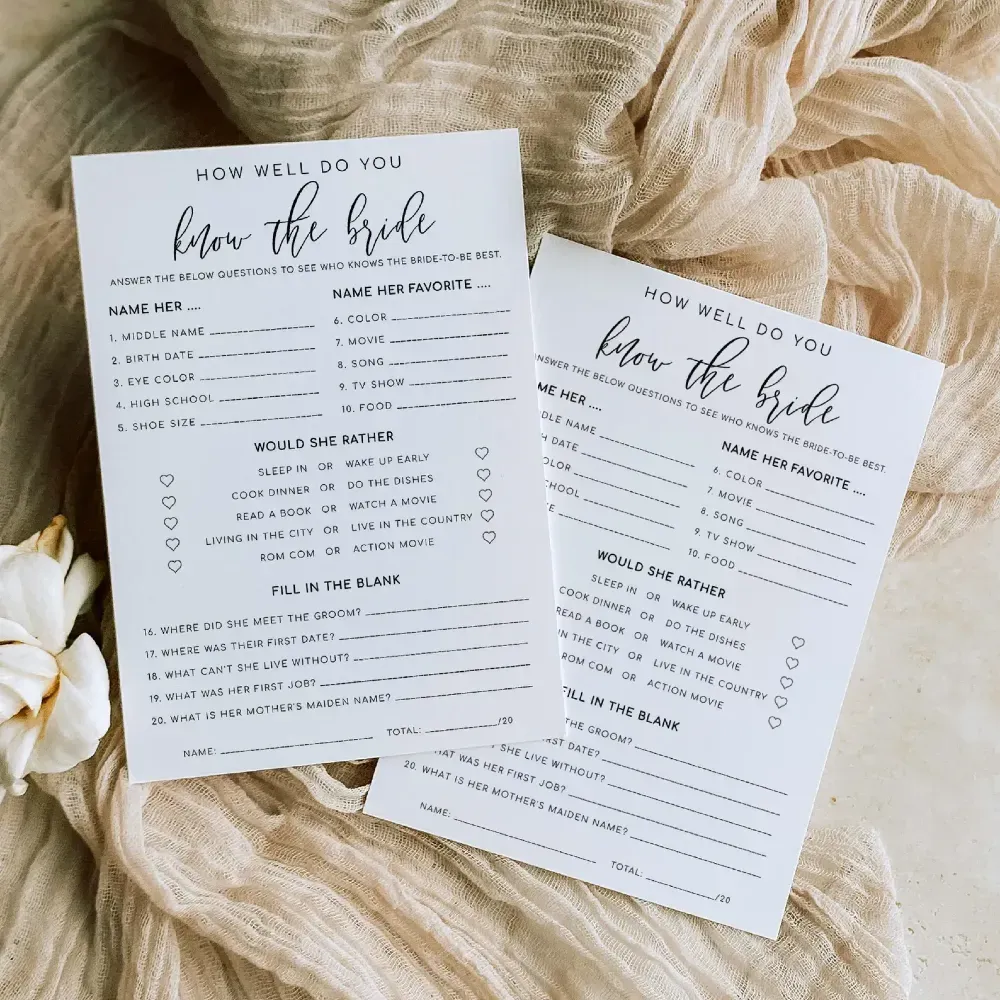 HOW WELL DO YOU
know the bride
ANSWER THE BELOW QUESTIONS TO SEE WHO KNOWS THE BRIDE-TO-BE BEST.
NAME HER ....
1. MIDDLE NAME
2. BIRTH DATE
3. EYE COLOR
4. HIGH SCHOOL
5. SHOE SIZE
NAME HER FAVORITE ....
6. COLOR
7. MOVIE
8. SONG
9. TV SHOW
10. FOOD
WOULD SHE RATHER
SLEEP IN OR WAKE UP EARLY
COOK DINNER OR DO THE DISHES
READ A BOOK OR WATCH A MOVIE
LIVING IN THE CITY OR LIVE IN THE COUNTRY
ROM COM OR ACTION MOVIE
FILL IN THE BLANK
16. WHERE DID SHE MEET THE GROOM?
17. WHERE WAS THEIR FIRST DATE?
18. WHAT CAN'T SHE LIVE WITHOUT?
19. WHAT WAS HER FIRST JOB?
20. WHAT IS HER MOTHER'S MAIDEN NAME?
NAME: TOTAL: /20
HOW WELL DO YOU
know the bride
ANSWER THE BELOW QUESTIONS TO SEE WHO KNOWS THE BRIDE-TO-BE BEST.
ME HER ....
DLE NAME
H DATE
COLOR
CHOOL
E
NAME HER FAVORITE ....
6. COLOR
7. MOVIE
8. SONG
9. TV SHOW
10. FOOD
WOULD SHE RATHER
SLEEP IN OR WAKE UP EARLY
COOK DINNER OR DO THE DISHES
READ A BOOK OR WATCH A MOVIE
IN THE CITY OR LIVE IN THE COUNTRY
ROM COM OR ACTION MOVIE
FILL IN THE BLANK
THE GROOM?
RST DATE?
T SHE LIVE WITHOUT?
HAT WAS HER FIRST JOB?
20. WHAT IS HER MOTHER'S MAIDEN NAME?
NAME: TOTAL: /20